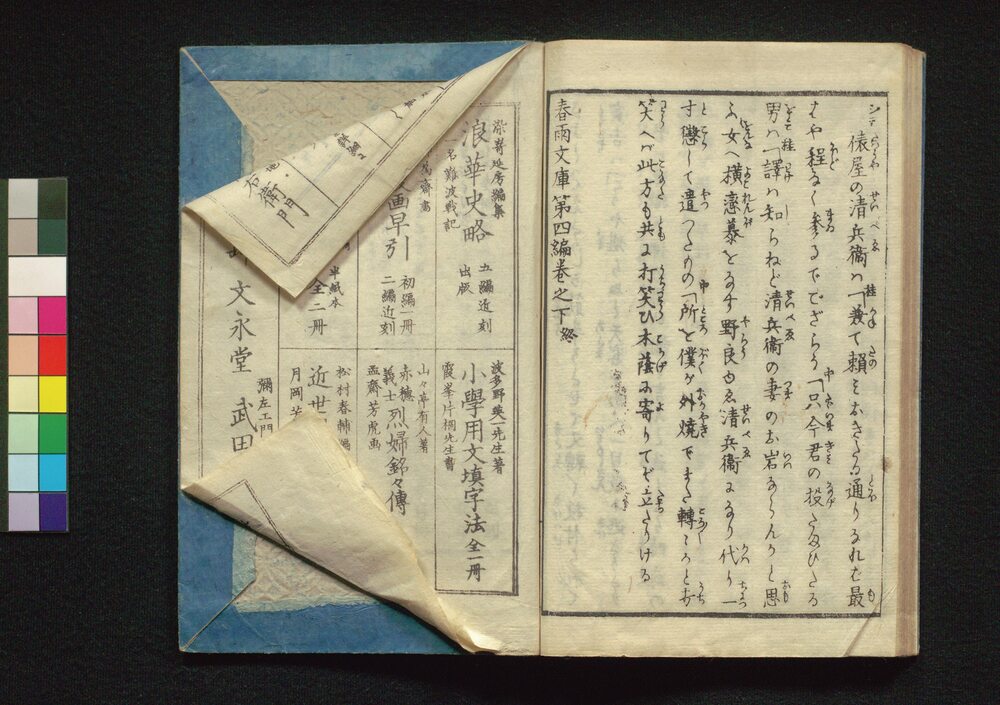 俵屋の清兵衛ハ「兼て頼ミおきたる通りなれば最
はや程なく参るでござらう「只今君の投たまひたる
男ハ「譯ハ知らねど清兵衛の妻のお岩ならんかと思
ふ女へ横恋慕をなす野良ゆゑ清兵衛になり代り一
寸懲して遣つたもの「所を僕が外焼でまた轉ころと打
笑へバ此方も共に打笑ひ木蔭に寄りてぞ立たりける
春雨文庫第四編巻之下終
染崎延房編集
浪華史略 五編近刻 出版
一名難波戦記
画早引 初編一冊 二編近刻
半紙本
全二冊
波多野英一先生著
小學用文填字法 全一冊
霞峯片桐先生書
山々亭有人著
赤穂義士 烈婦銘々傳
孟齋芳虎画
松村春輔編
近世
月岡芳
彌左エ門
文永堂 武田
右衛門